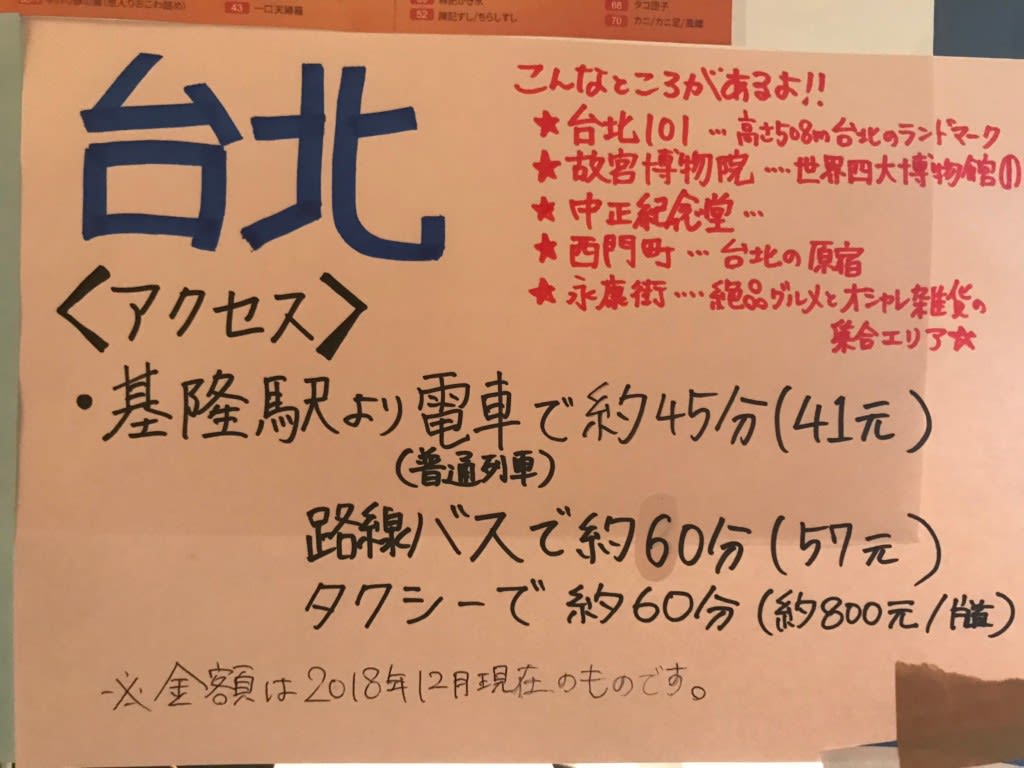 43 一口天婦羅
52 陳記すし/ちらしすし
68 タコ団子
70 カニ/カニ足/風螺
台北
こんなところがあるよ!!
★台北101…高さ508m台北のランドマーク
★故宮博物院….世界四大博物館①
★中正紀念堂…
★西門町…台北の原宿
★永康街….絶品グルメとオシャレ雑貨の
集合エリア★
〈アクセス〉
・基隆駅より電車で約45分(41元)
(普通列車)
路線バスで約60分(57元)
タクシーで約60分(約800元/片道)
※金額は2018年12月現在のものです。